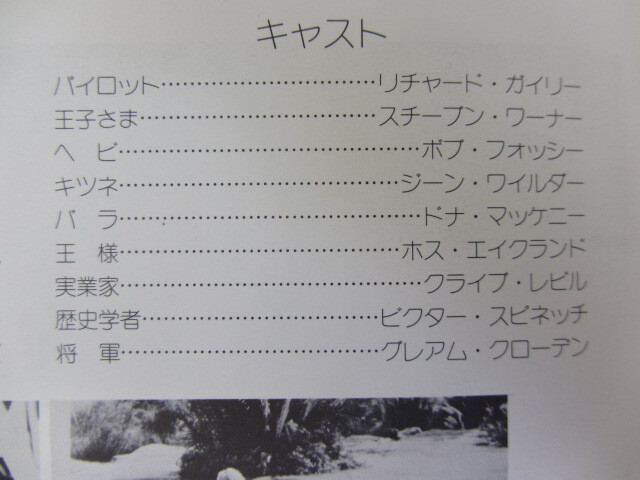 キャスト
パイロット……………………………リチャード・ガイリー
王子さま…………………………………スチーブン・ワーナー
ヘ　ビ………………………………………ボブ・フォッシー
キツネ……………………………………ジーン・ワイルダー
バ　ラ………………………………………ドナ・マッケニー
王　様……………………………………ホス・エイクランド
実業家………………………………………クライブ・レビル
歴史学者………………………………ビクター・スピネッチ
将　軍…………………………………グレアム・クローデン